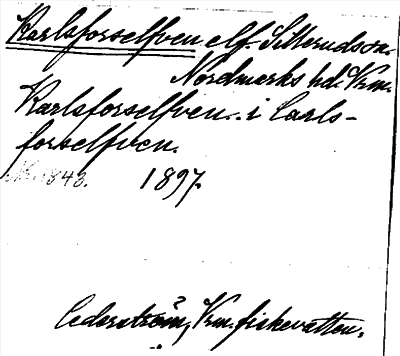 Karlsforselfven elf. Silleruds sn.
Nordmarks hd. Vrm.
Karlsforselfven.. i Carls-
forselfven.
1843. 1897.
Cederström, Vrm. fiskevatten.